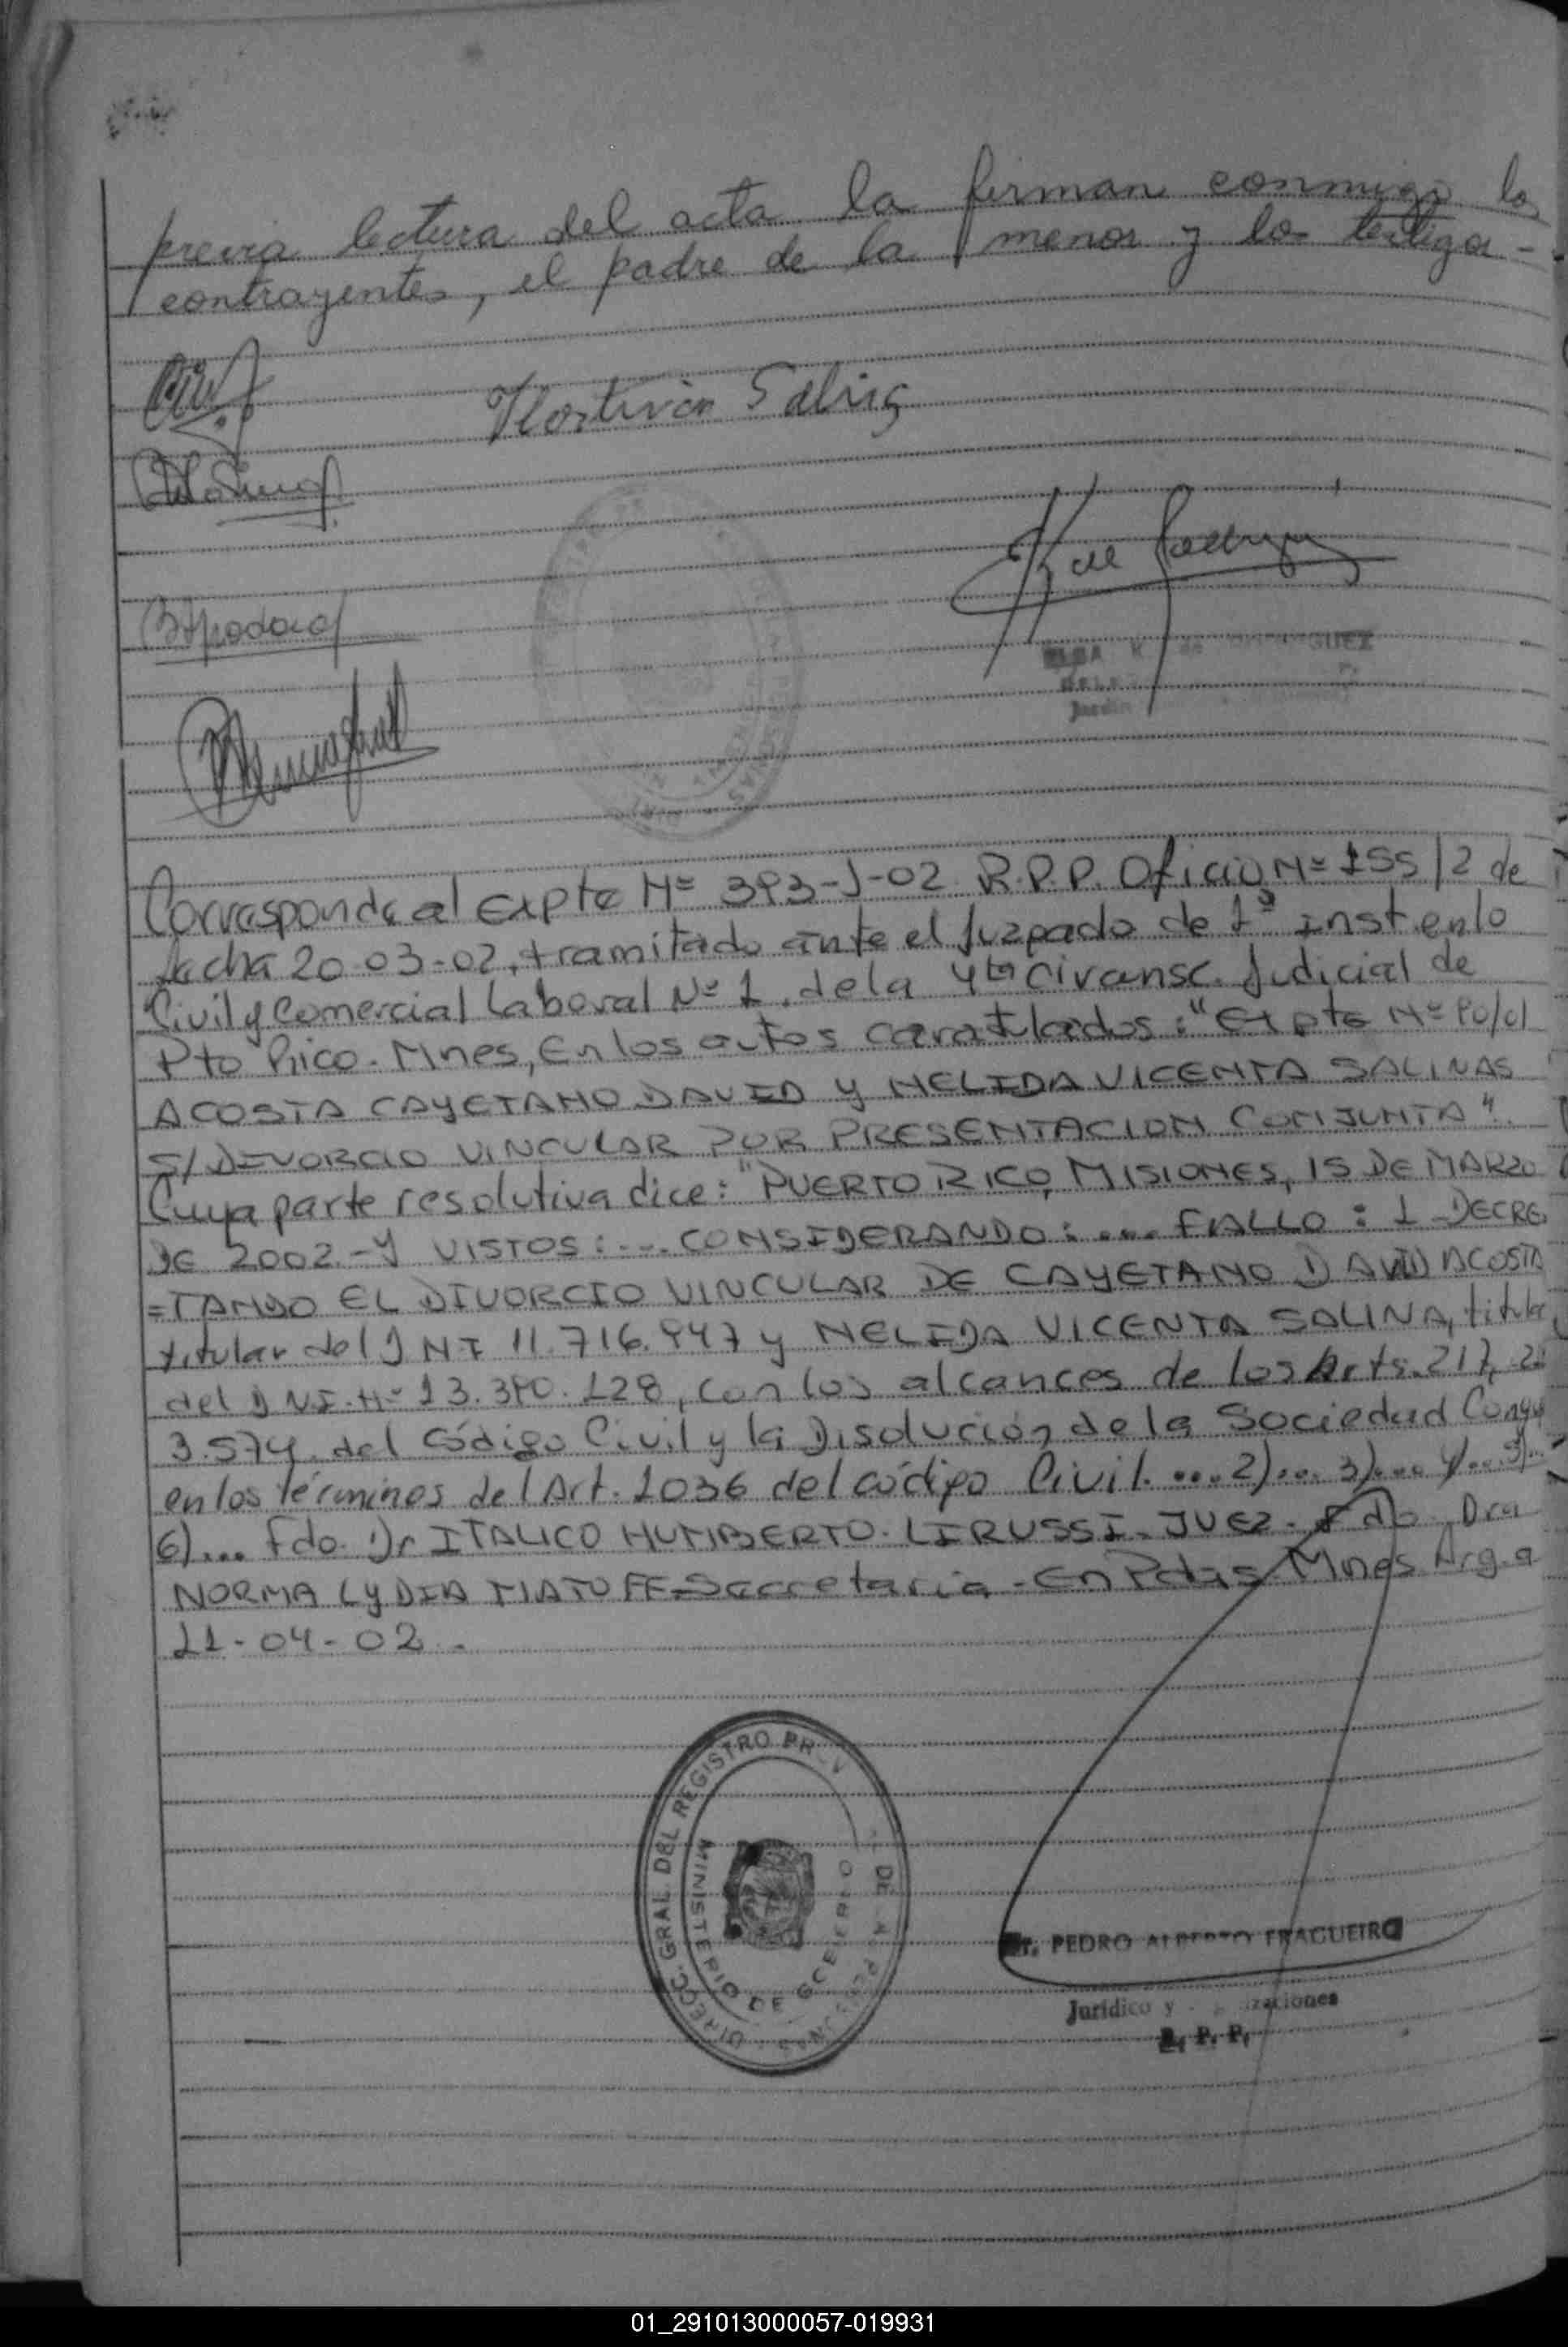 previa lectura del acta la firman conmigo los
contrayentes, el padre de la menor y los testigos -
Salina
ELSA K. de
Corresponde al Expte Nº 393-J-02 R.P.P. Oficio Nº 155/2 de
fecha 20-03-02, tramitado ante el Juzgado de 1ª Inst. en lo
Civil y Comercial Laboral Nº 1, de la 4ta Circunsc. Judicial de
Pto Rico - Mnes, En los autos caratulados: "Expte Nº 90/01
ACOSTA CAYETANO DAVID y NELIDA VICENTA SALINAS
S/ DIVORCIO VINCULAR POR PRESENTACION CONJUNTA".
Cuya parte resolutiva dice: "PUERTO RICO, MISIONES, 15 DE MARZO
DE 2002.- Y VISTOS: ... CONSIDERANDO: .... FALLO: 1 DECRE
=TANDO EL DIVORCIO VINCULAR DE CAYETANO DAVID ACOSTA
titular del DNI 11.716.947 y NELIDA VICENTA SALINA, titular
del D.N.I. Nº 13.390.128, con los alcances de los Arts. 217,
3.574, del Código Civil y la Disolución de la Sociedad Conyu
en los términos del Art. 1036 del código Civil. ....2)... 3).... 4)... 5)...
6)... Fdo. Dr ITALICO HUMBERTO LIRUSSI - JUEZ - Fdo. Dra
NORMA LYDIA MATOFF - Secretaria - En Pdas Mnes Arg. a
11-04-02.
DIRECC. GRAL DEL REGISTRO PROV DE LAS PERSONAS
MINISTERIO DE GOBIERNO
Dr. PEDRO ALBERTO FRAGUEIRO
Jurídico y
R. P. P.
01_291013000057-019931